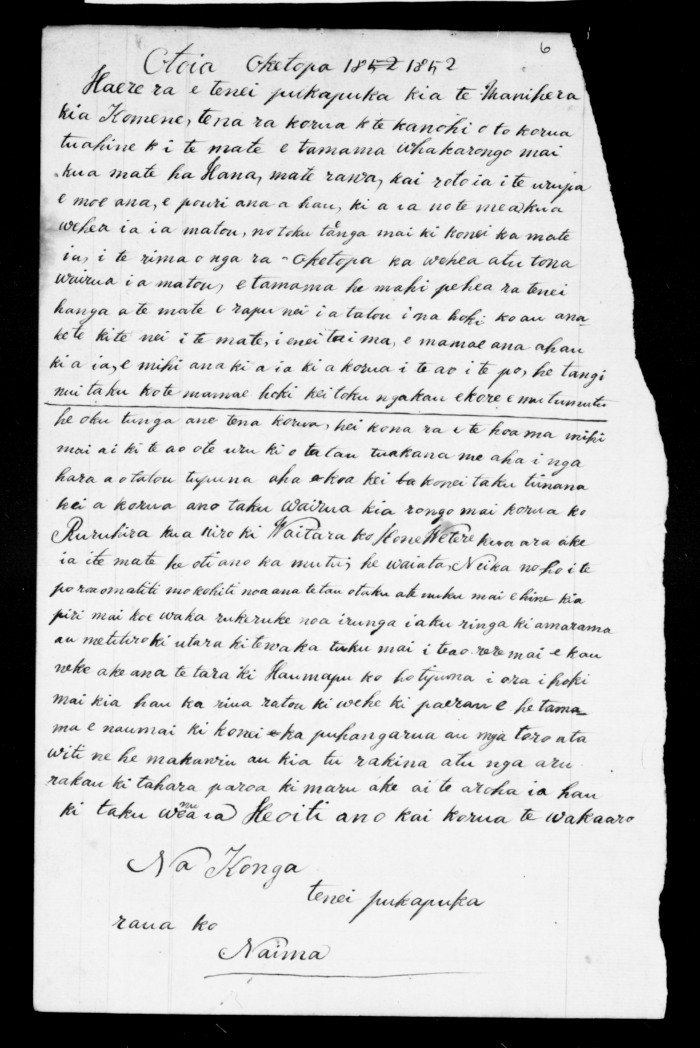 6
Otoia Oketopa 1852 1852
Haere ra e tenei pukapuka kia te Manihera
kia Komene, tena ra korua k te kanohi o to korua
tuahine k i te mate e tamama whakarongo mai
kua mate ha Hana, mate rawa, kai roto ia i te urupa
e moe ana, e pouri ana a hau, ki a ia no te mea kua
wehea ia ia matou, no toku taenga mai ki konei ka mate
ia, i te rima o nga ra - Oketopa ka wehea atu tona
wairua i a matou, e tamama he mahi pehea ra tenei
hanga a te mate e rapu nei i a tatou i na hoki ko au ana-
ke te kite nei i te mate, i enei taima, e mamae ana ahau
ki a ia, e mihi ana ki a ia ki a korua i te ao i te po, he tangi
nui taku ko te mamae hoki kei toku ngakau ekore e mutumutu
he oku tunga ane tena korua, hei kona ra i te hoa ma mihi
mai ai ki te ao ote uru ki o tatau tuakana me aha i nga
hara a o tatou tupuna aha koa kei konei taku tinana
kei a korua ano taku wairua kia rongo mai korua ko
Ruruhira kua riro ki Waitara ko Hone Wetere kua ara ake
ia ite mate he oti ano ka mutu, he waiata, Neika noho i te
po roa matiti mo kohiti noa ana te tau otuku ate nuku mai ehine kia
piri mai koe waka rukeruke noa irunga i aku ringa ki amarama
au me titiro ki utara ki tewaka tuku mai i teao. rere mai e kau
neke ake ana te tara ki Haumapu ko ho tipuna i ora i hoki
mai kia hau ka riua ratou ki wehe ki paerau e he tama-
ma e naumai ki konei ka puhangarua au nga toro ata
witi ne he makawiu au kia tu rakina atu nga aru
rakau ki tahara paroa ki maru ake ai te aroha ia hau
ki taku wenua Heoiti ano kai korua te wakaaro
Na Konga
tenei pukapuka
raua ko
Naima